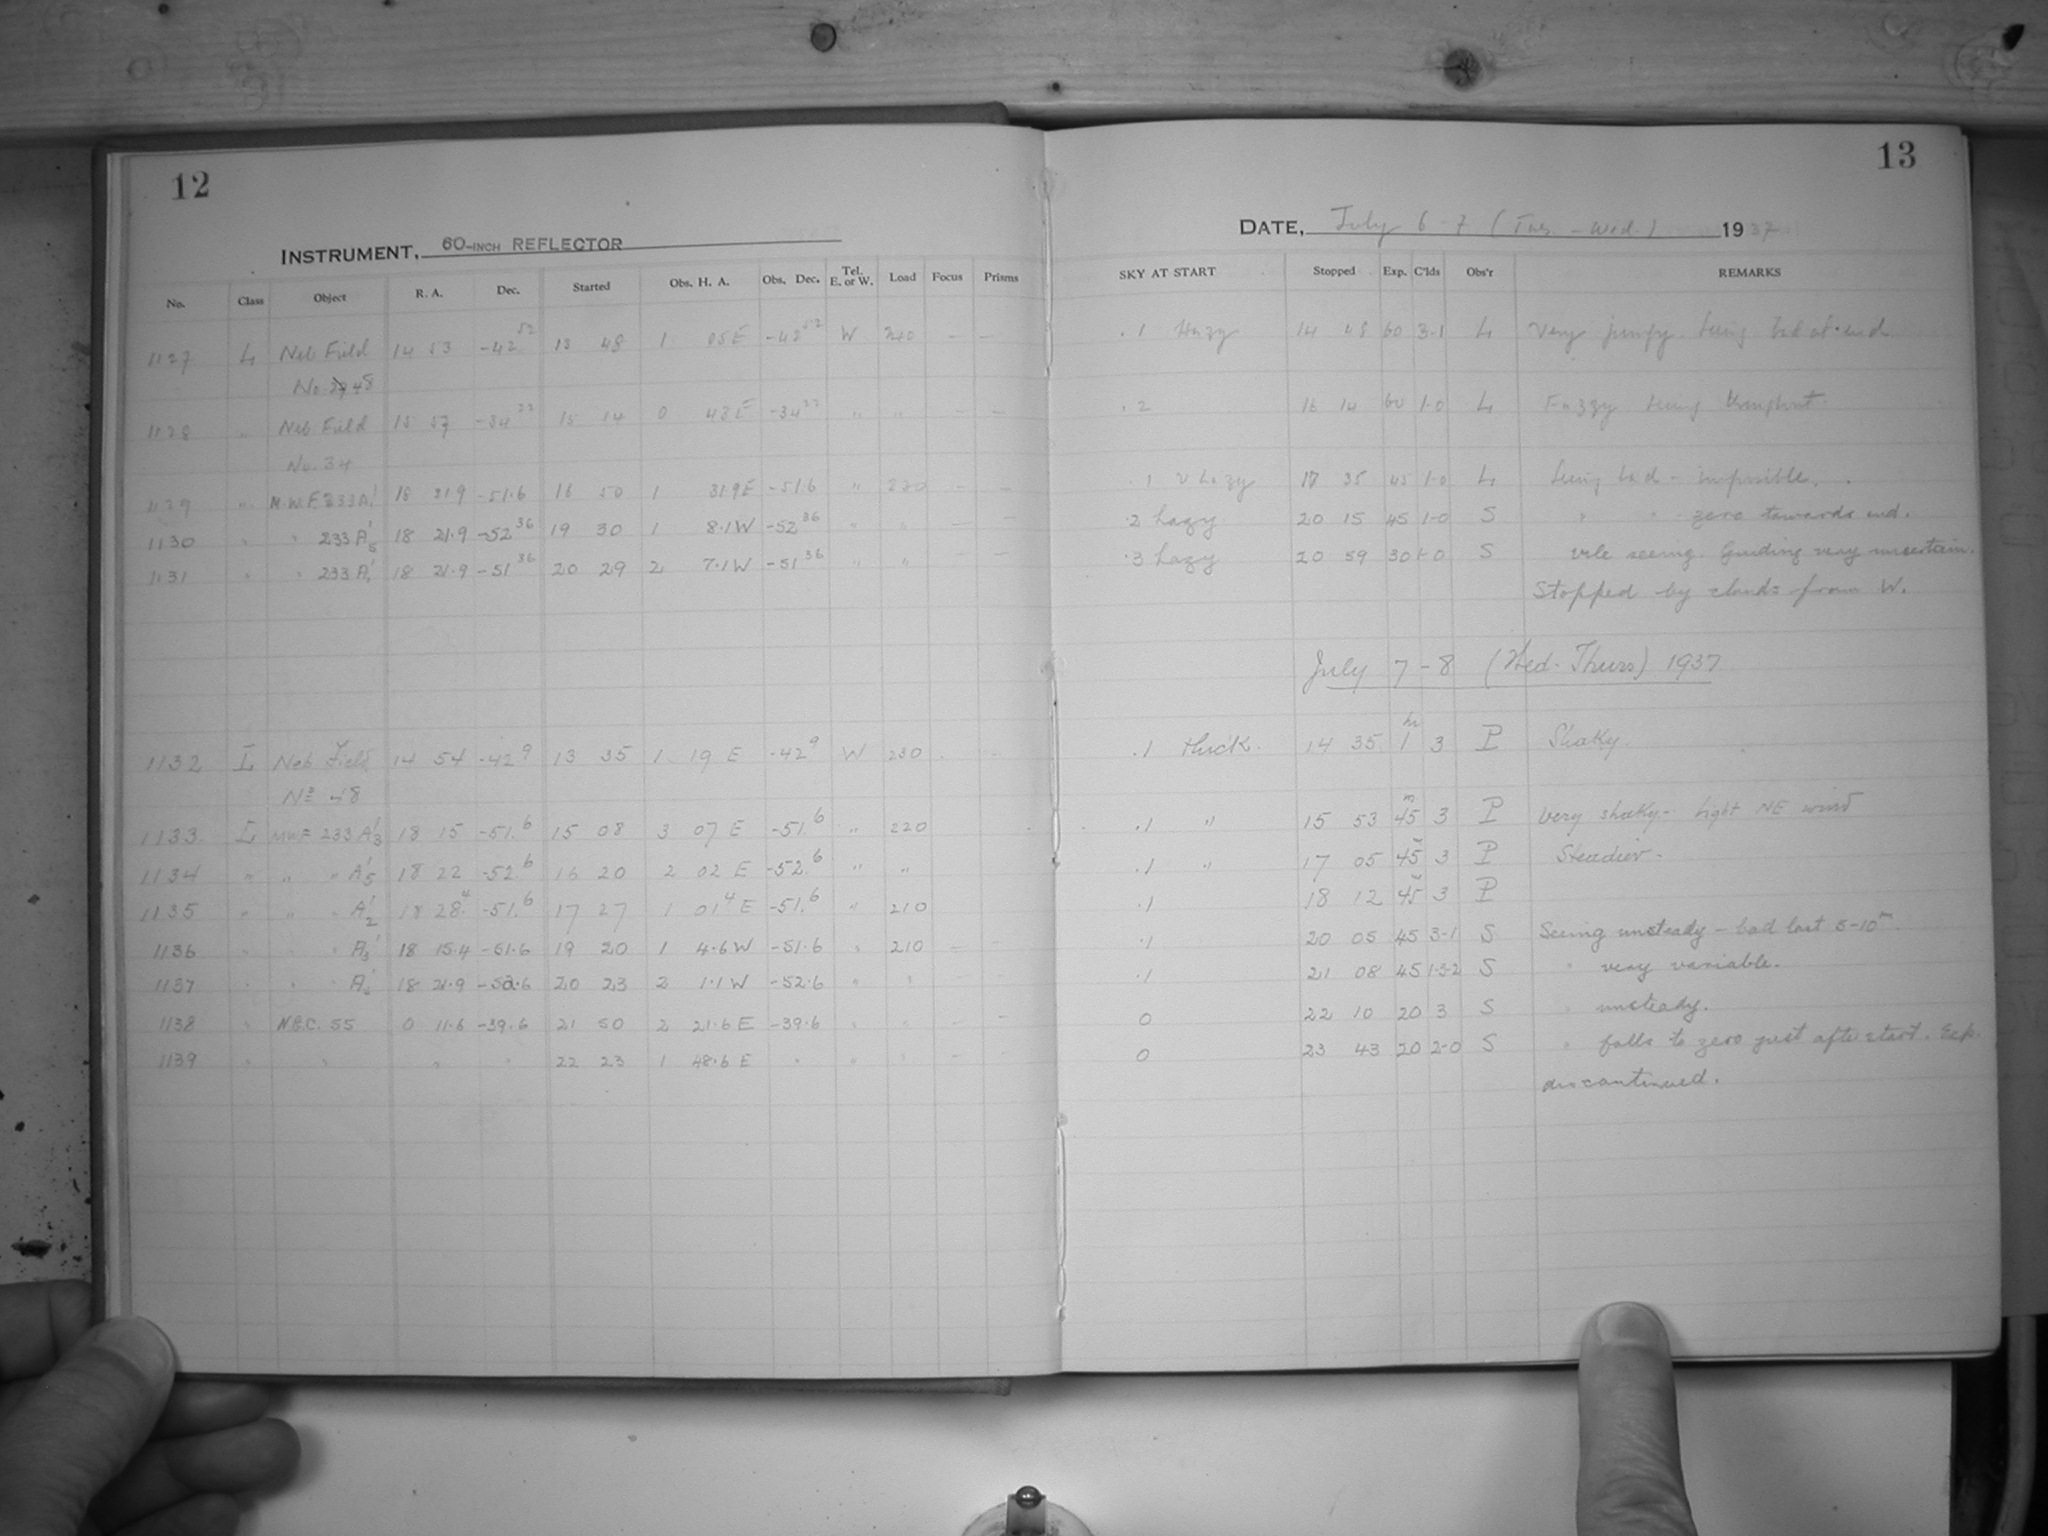 12
INSTRUMENT, 60-INCH REFLECTOR
No. Class Object R. A. Dec. Started Obs. H. A. Obs. Dec. Tel. E. or W. Load Focus Prisms
1127 L Neb Field 14 53 -42 52 13 48 1 05 E -42 52 W 240 - -
No. 48
1128 " Neb Field 15 57 -34 22 15 14 0 43 E -34 22 " " - -
No. 34
1129 " M.W.F. 233 A'1 18 21.9 -51.6 16 50 1 31.9 E -51.6 " 220 - -
1130 " " 233 A'5 18 21.9 -52 36 19 30 1 8.1 W -52 36 " " - -
1131 " " 233 A'1 18 21.9 -51 36 20 29 2 7.1 W -51 36 " " - -
1132 L Neb Field 14 54 -42 9 13 35 1 19 E -42 9 W 230
No 48
1133 L MWF 233 A'3 18 15 -51.6 15 08 3 07 E -51.6 " 220
1134 " " " A'5 18 22 -52.6 16 20 2 02 E -52.6 " "
1135 " " " A'2 18 28.4 -51.6 17 27 1 01 4 E -51.6 " 210
1136 " " " A'3 18 15.4 -51.6 19 20 1 4.6 W -51.6 " 210 -
1137 " " " A'5 18 21.9 -52.6 20 23 2 1.1 W -52.6 " " - -
1138 " N.G.C. 55 0 11.6 -39.6 21 50 2 21.6 E -39.6 " " - -
1139 " " " " 22 23 1 48.6 E " " " - -
13
DATE, July 6-7 (Tues - Wed.) 1937
SKY AT START Stopped Exp. C'lds Obs'r REMARKS
.1 Hazy 14 48 60 3-1 L Very jumpy. Seeing bad at end
.2 16 14 60 1-0 L Fuzzy seeing throughout.
.1 v hazy 17 35 45 1-0 L Seeing bad - impossible.
.2 hazy 20 15 45 1-0 S " " zero towards end.
.3 hazy 20 59 30 1-0 S vile seeing. Guiding very uncertain.
Stopped by clouds from W.
July 7-8 (Wed-Thurs) 1937
.1 thick. 14 35 1 hr 3 P Shaky
.1 " 15 53 45 m 3 P Very shaky - light NE wind
.1 " 17 05 45 3 P Steadier.
.1 18 12 45 3 P
.1 20 05 45 3-1 S Seeing unsteady - bad last 5-10 m.
.1 21 08 45 1-3-2 S " very variable.
0 22 10 20 3 S " unsteady.
0 23 43 20 2-0 S " falls to zero just after start. Exp.
discontinued.